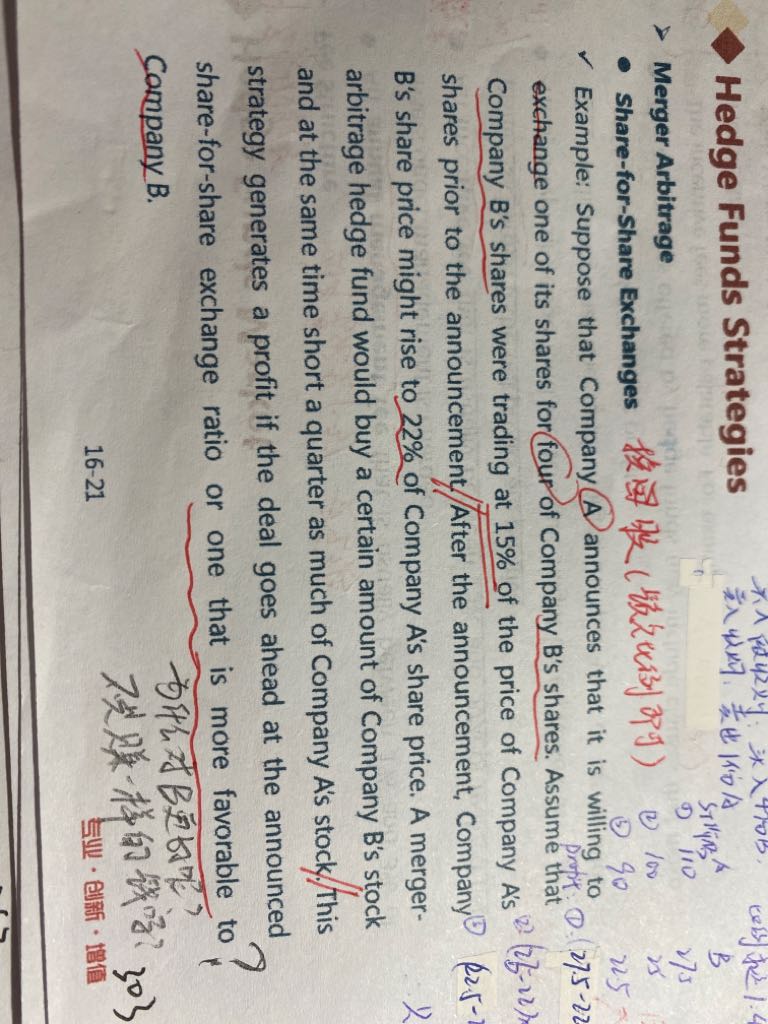 Hedge Funds Strategies
➢ Merger Arbitrage
● Share-for-Share Exchanges
✓ Example: Suppose that Company A announces that it is willing to
exchange one of its shares for four of Company B's shares. Assume that
Company B's shares were trading at 15% of the price of Company A's
shares prior to the announcement. After the announcement, Company
B's share price might rise to 22% of Company A's share price. A merger-
arbitrage hedge fund would buy a certain amount of Company B's stock
and at the same time short a quarter as much of Company A's stock. This
strategy generates a profit if the deal goes ahead at the announced
share-for-share exchange ratio or one that is more favorable to
Company B.
?
为什么对B更好呢?
不是赚一样的钱吗?
16-21
专业·创新·增值
303
A B
① 110 27.5
② 100 25
③ 90 22.5
profit: ①